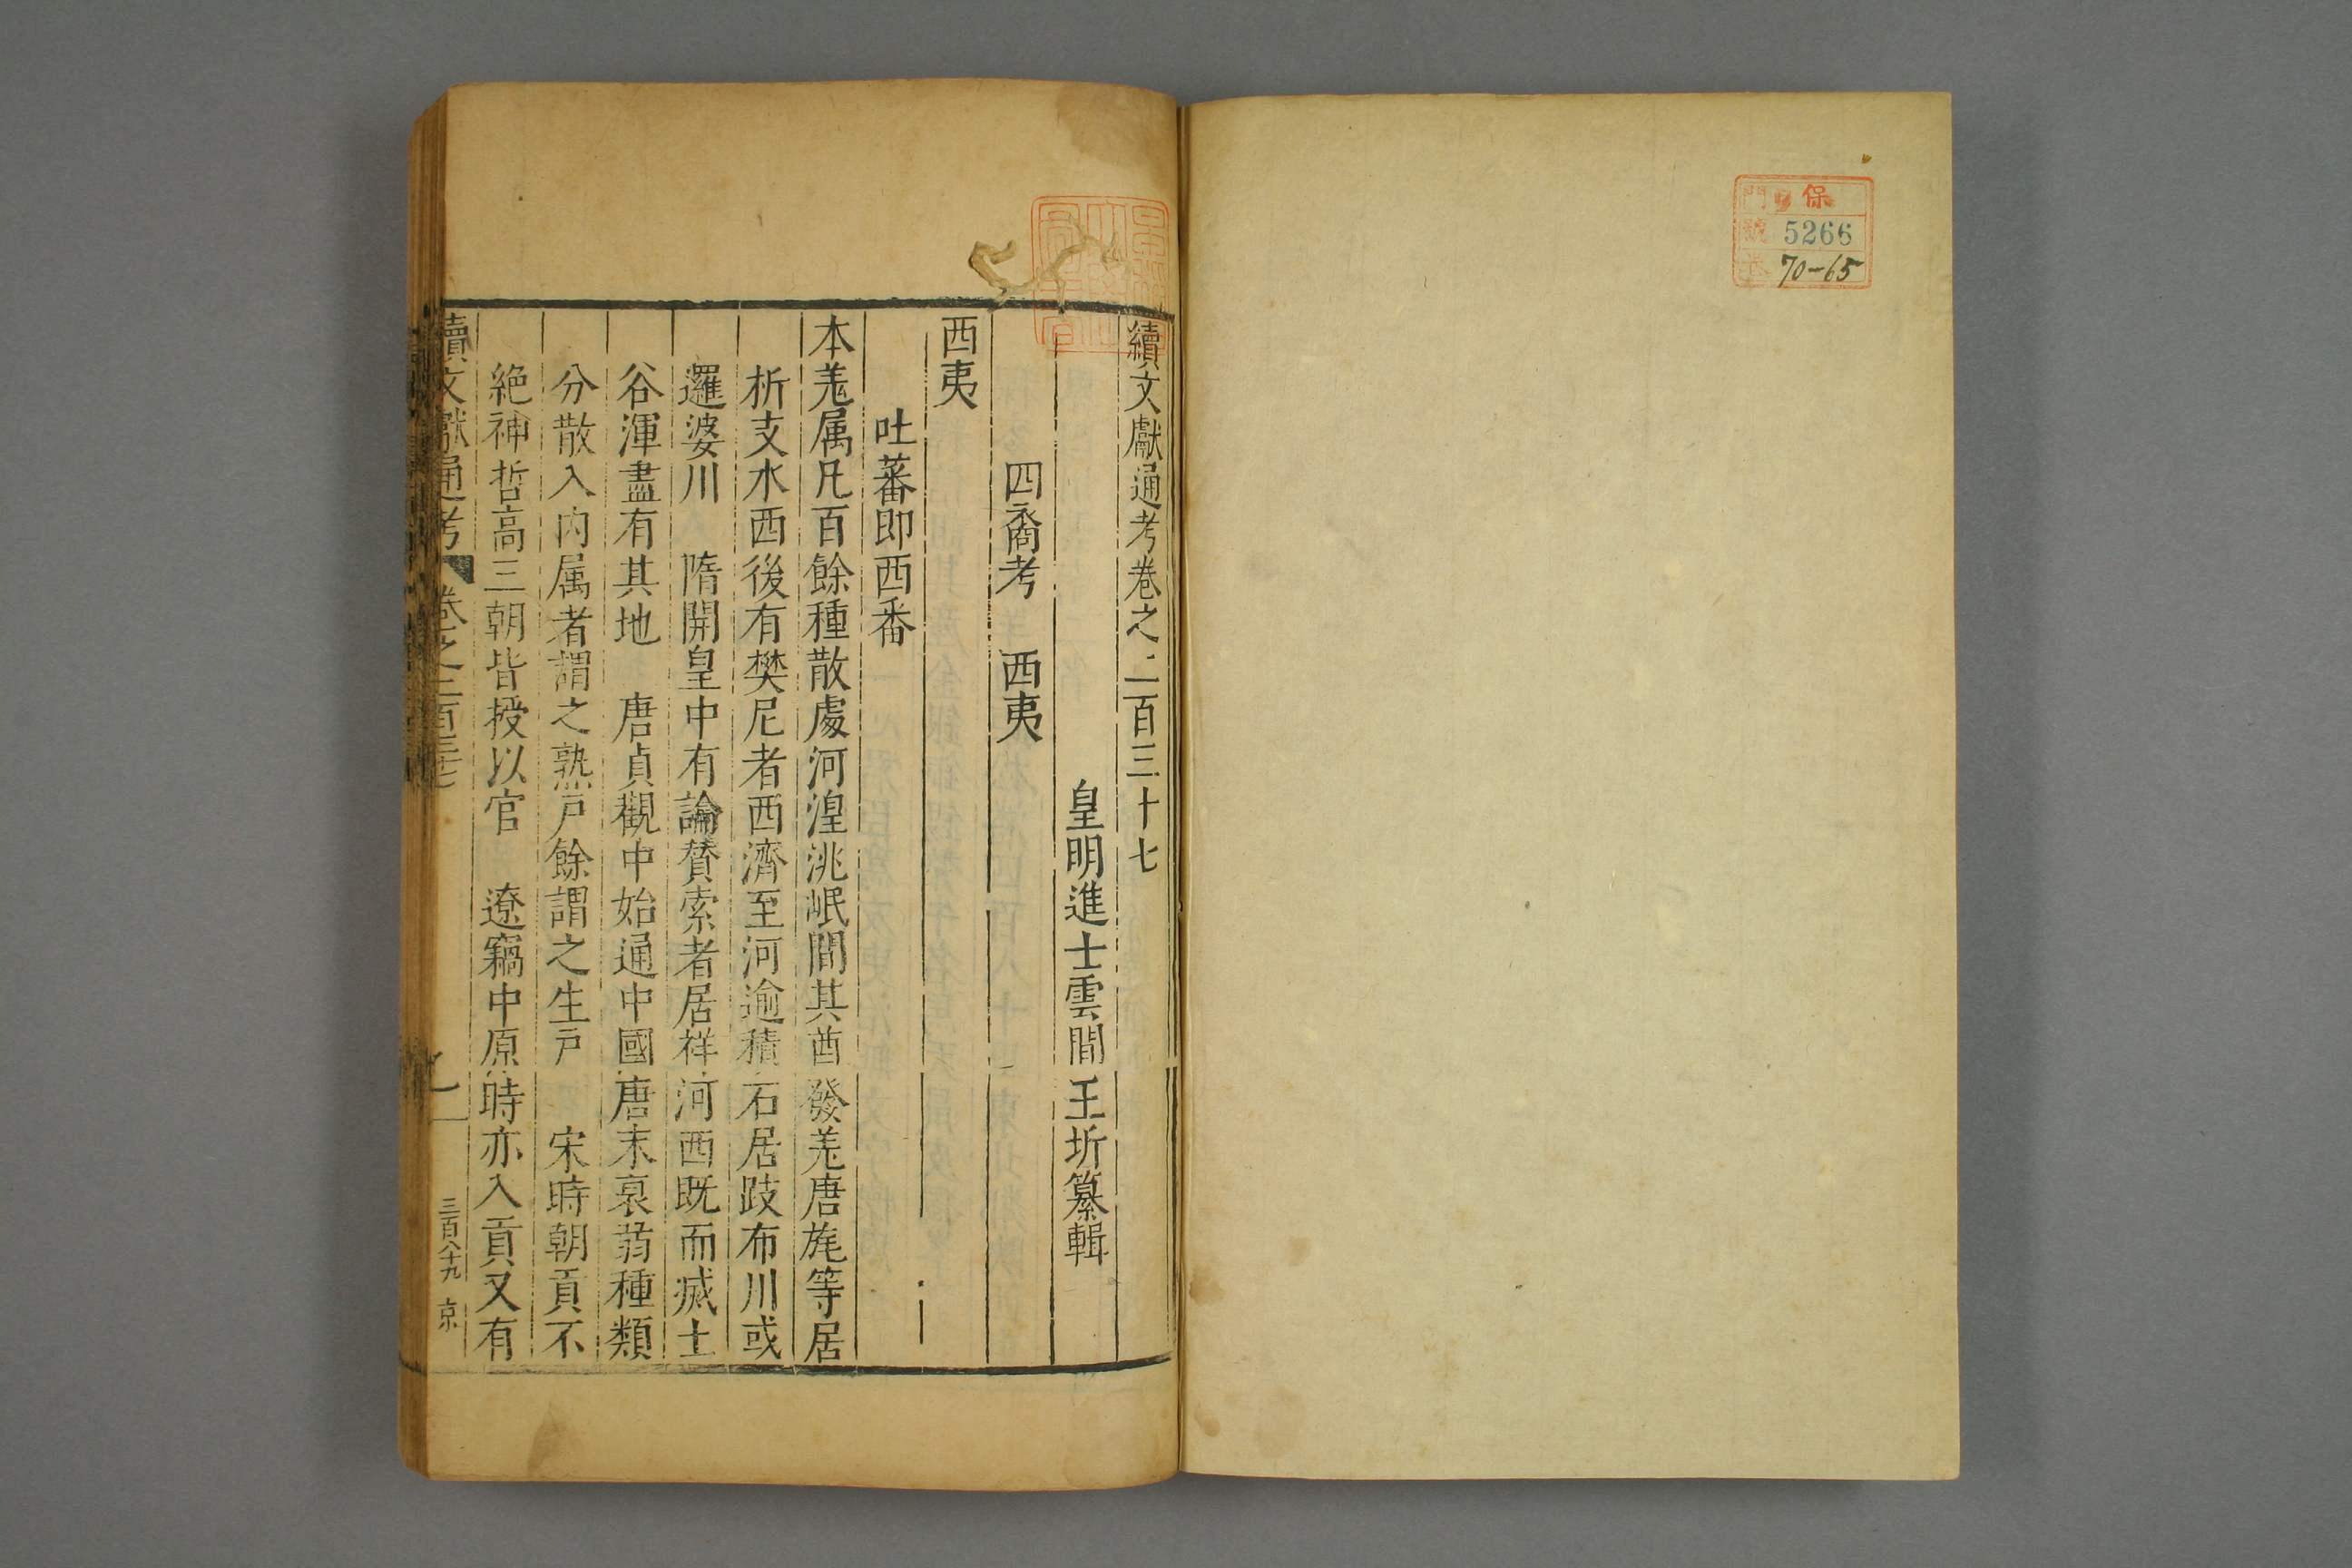 門 保
號 5266
70-65
續文獻通考卷之二百三十七
皇明進士雲間王圻纂輯
四裔考 西夷
西夷
吐蕃即西番
本羗属凡百餘種散處河湟洮岷間其酋發羗唐旄等居
析支水西後有樊尼者西濟至河逾積石居跂布川或
邏婆川 隋開皇中有論賛索者居祥河西既而㓕土
谷渾盡有其地 唐貞觀中始通中國唐末衰弱種類
分散入内属者謂之熟戶餘謂之生戶 宋時朝貢不
絶神哲高三朝皆授以官 遼竊中原時亦入貢又有
續文獻通考 卷之二百三十七 三百八十九 京